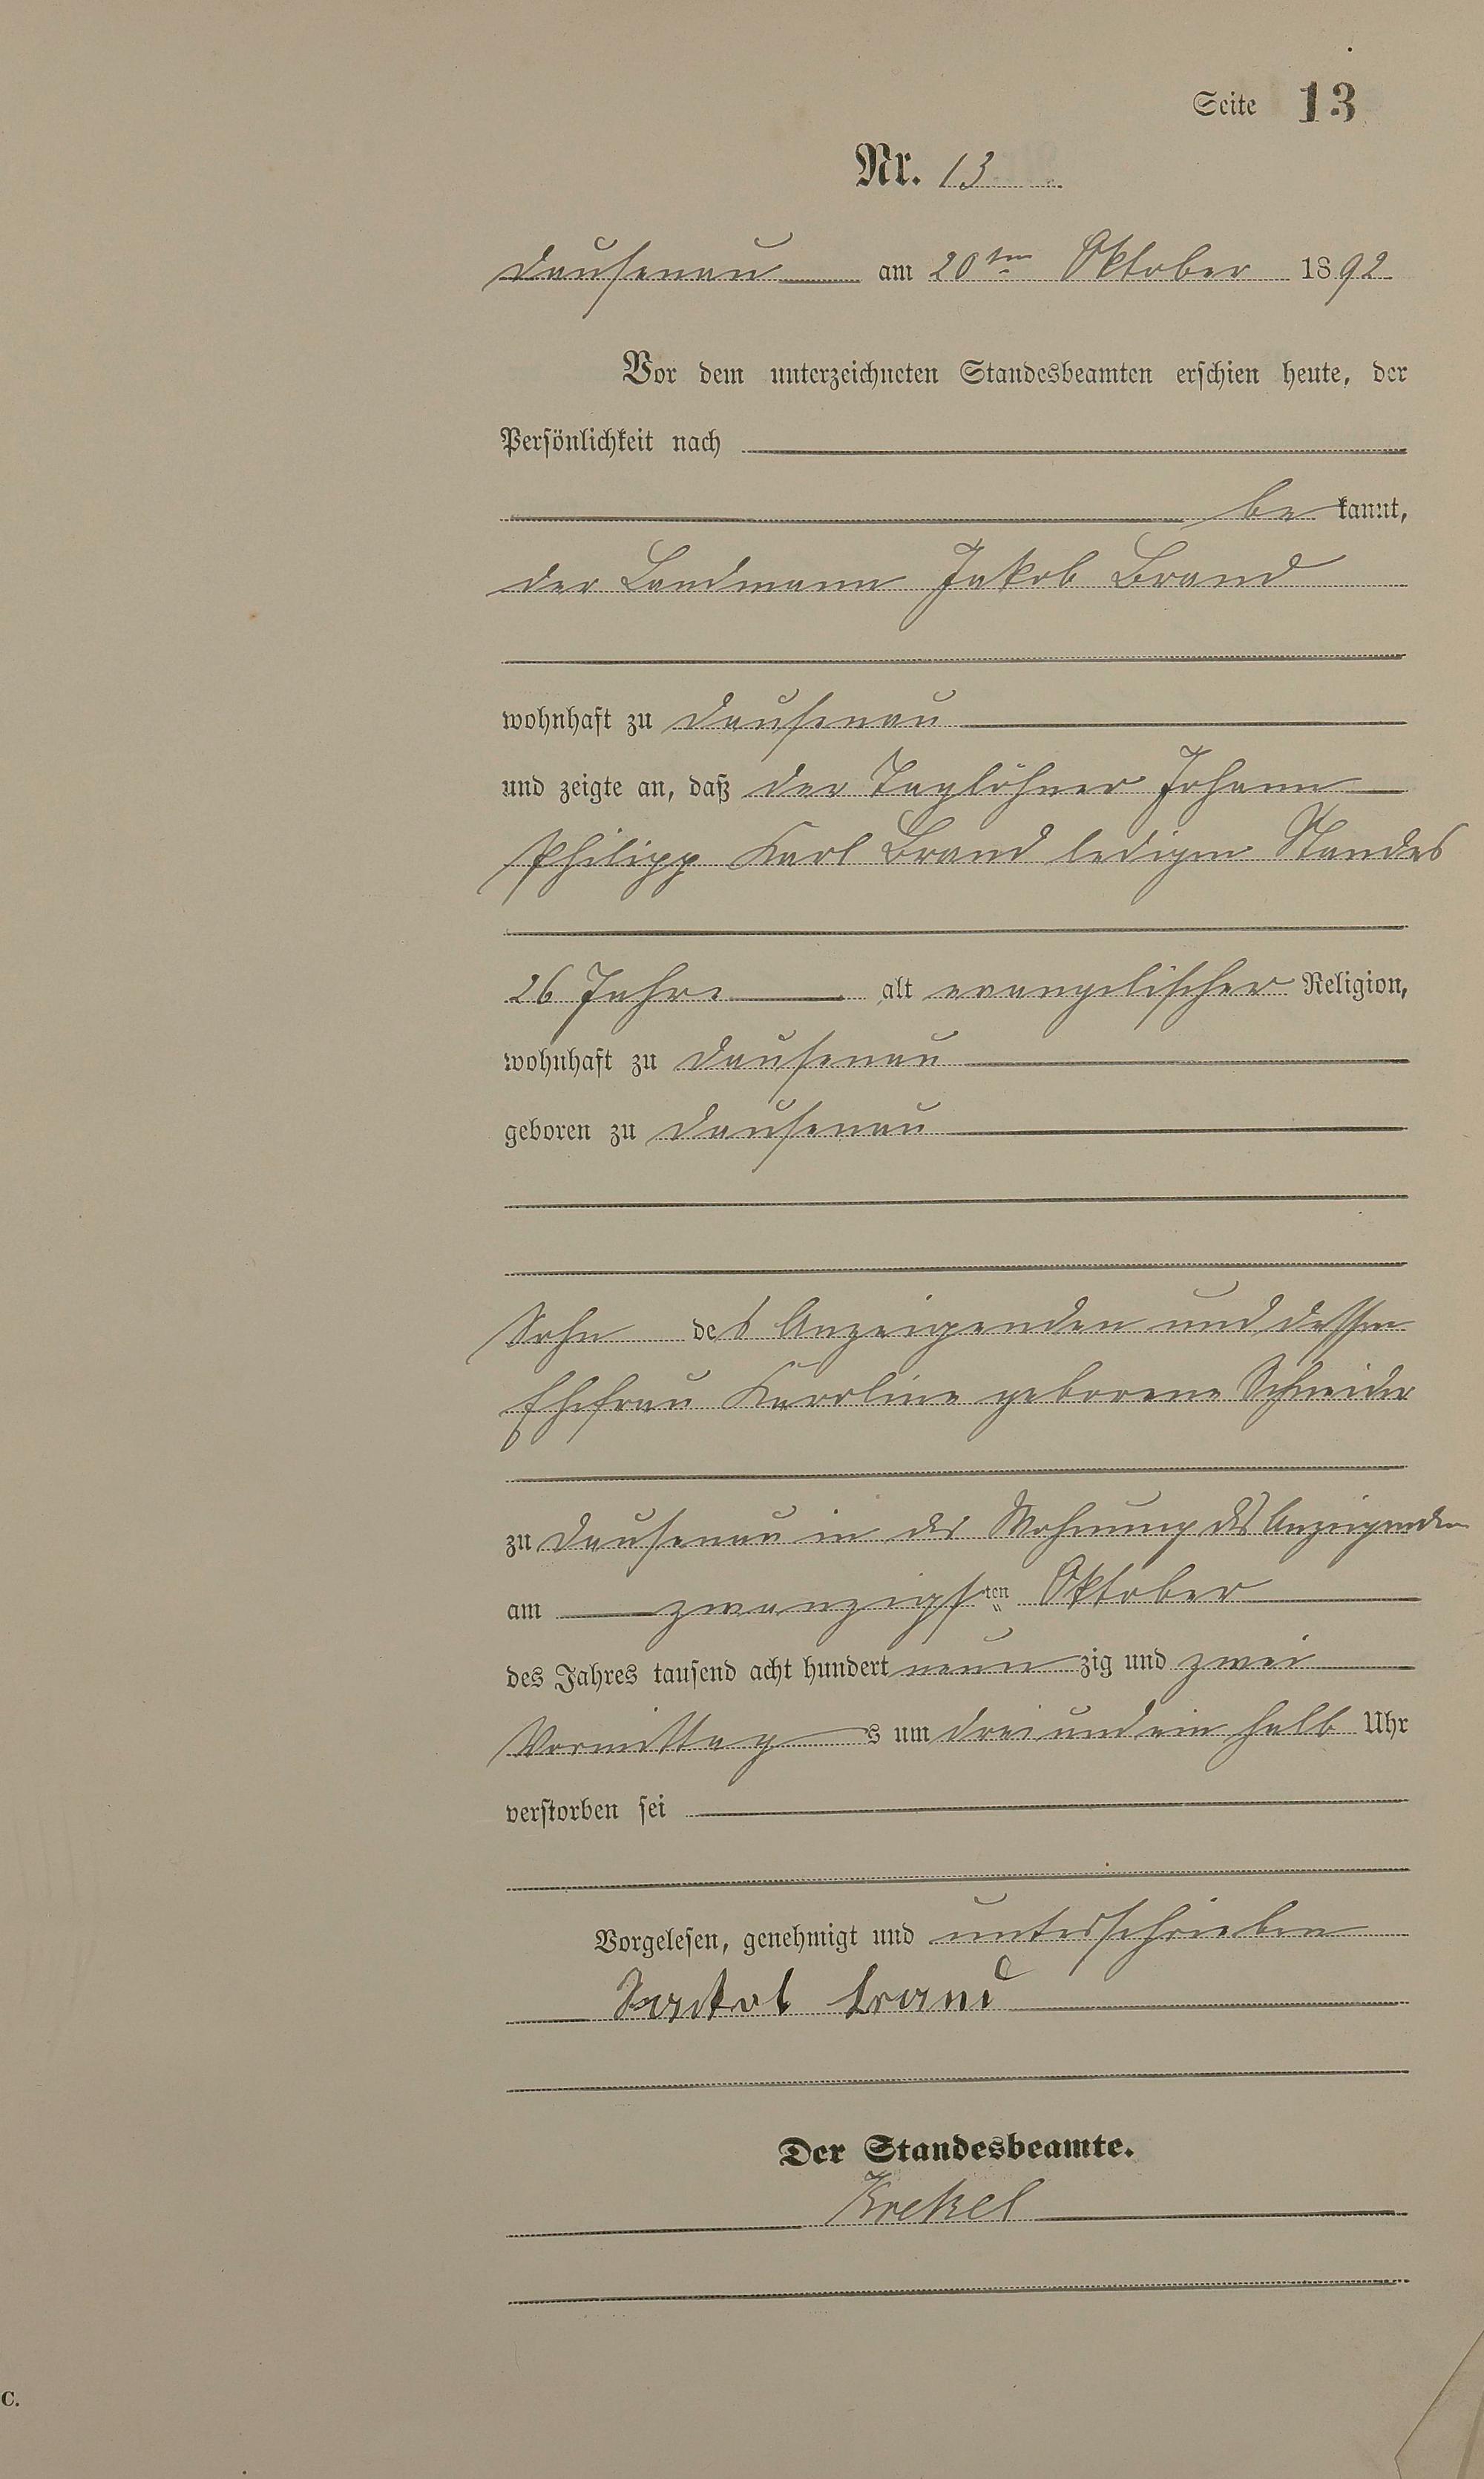 Seite 13
Nr. 13
Dausenau am 20ten Oktober 1892
Vor dem unterzeichneten Standesbeamten erschien heute, der
Persönlichkeit nach
be kannt,
der Landmann Jakob Brand
wohnhaft zu Dausenau
und zeigte an, daß der Taglöhner Johann
Philipp Karl Brand ledigen Standes
26 Jahre alt evangelischer Religion,
wohnhaft zu Dausenau
geboren zu Dausenau
Sohn des Anzeigenden und dessen
Ehefrau Karoline geborene Schneider
zu Dausenau in der Wohnung des Anzeigenden
am zwanzigsten Oktober
des Jahres tausend acht hundert neunzig und zwei
Vormittags um drei und ein halb Uhr
verstorben sei
Vorgelesen, genehmigt und unterschrieben
Jackob Brand
Der Standesbeamte.
Krekel
C.